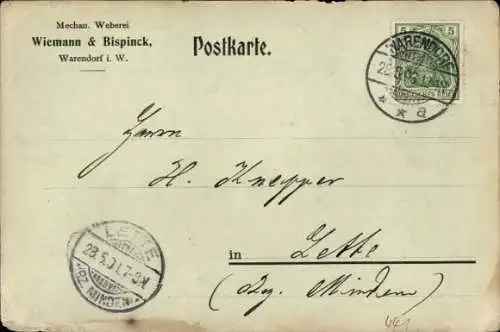 Mechan. Weberei
Wiemann & Bispinck,
Warendorf i. W.
Postkarte.
5 5
WARENDORF
* * a
Herrn
H. Knepper
in Lette
(Bz. Minden)
LETTE
28.5.01.7-8N.
*(BZ. MINDEN)*
441